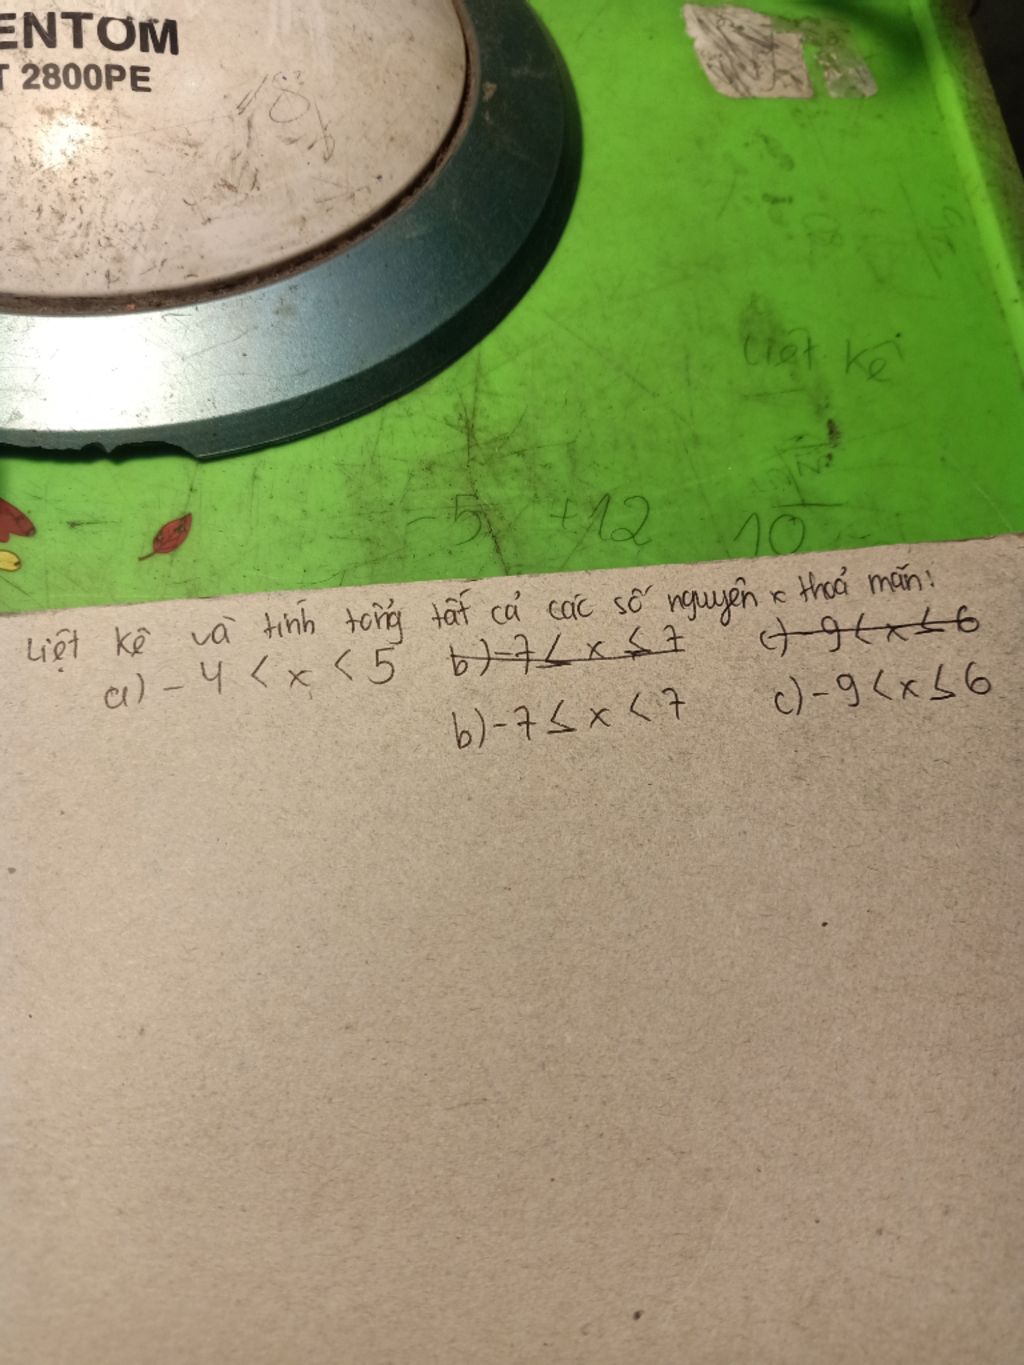 ENTOM
T 2800PE
Liệt kê
-5 +12 10
Liệt kê và tính tổng tất cả các số nguyên x thoả mãn:
a) -4 < x < 5 b) -7 ≤ x ≤ 7 c) -9 < x ≤ 6
b) -7 ≤ x < 7 c) -9 < x ≤ 6